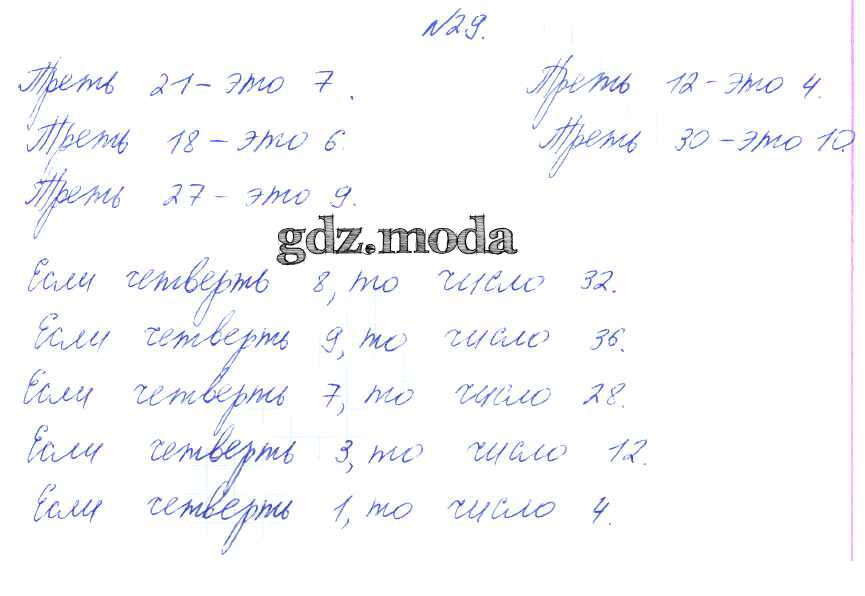 №29.
Треть 21 - это 7. Треть 12 - это 4.
Треть 18 - это 6. Треть 30 - это 10.
Треть 27 - это 9.
gdz.moda
Если четверть 8, то число 32.
Если четверть 9, то число 36.
Если четверть 7, то число 28.
Если четверть 3, то число 12.
Если четверть 1, то число 4.